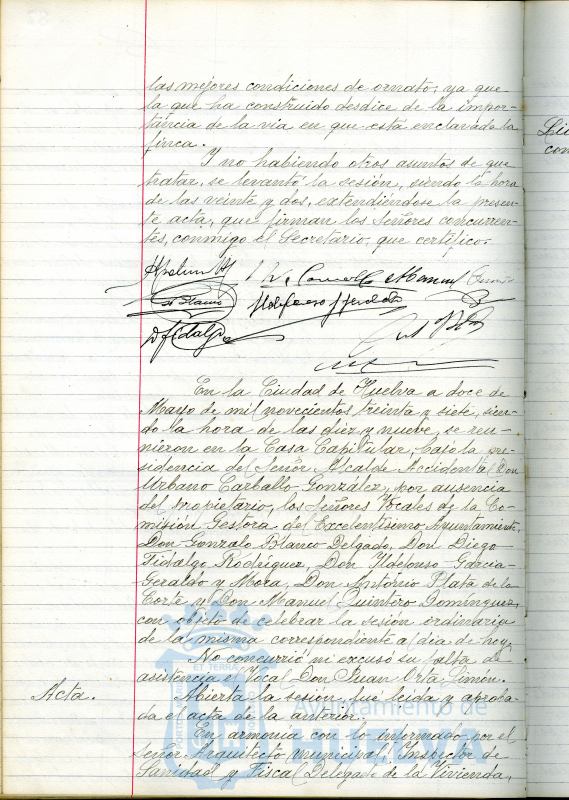 las mejores condiciones de ornato, ya que
la que ha construido desdice de la impor-
tancia de la via en que está enclavada la
finca.
Y no habiendo otros asuntos de que
tratar, se levantó la sesión, siendo la hora
de las veinte y dos, extendiéndose la presen-
te acta, que firman los Señores concurren-
tes, conmigo el Secretario, que certifico.
D Fidalgo
En la Ciudad de Huelva a doce de
Mayo de mil novecientos treinta y siete, sien-
do la hora de las diez y nueve, se reu-
nieron en la Casa Capitular, bajo la pre-
sidencia del Señor Alcalde Accidental Don
Urbano Carballo González, por ausencia
del propietario, los Señores Vocales de la Co-
misión Gestora del Excelentísimo Ayuntamiento,
Don Gonzalo Blanco Delgado, Don Diego
Fidalgo Rodriguez, Don Ildefonso Garcia-
Geraldo y Mora, Don Antonio Plata de la
Corte y Don Manuel Quintero Domínguez,
con objeto de celebrar la sesión ordinaria
de la misma correspondiente al día de hoy.
No concurrió ni excusó su falta de
asistencia el Vocal Don Juan Orta Simón.
Acta.
Abierta la sesión, fué leida y aproba-
da el acta de la anterior.
Ayuntamiento de
En armonia con lo informado por el
Señor Arquitecto municipal, Inspector de
Sanidad y Fiscal Delegado de la Vivienda,